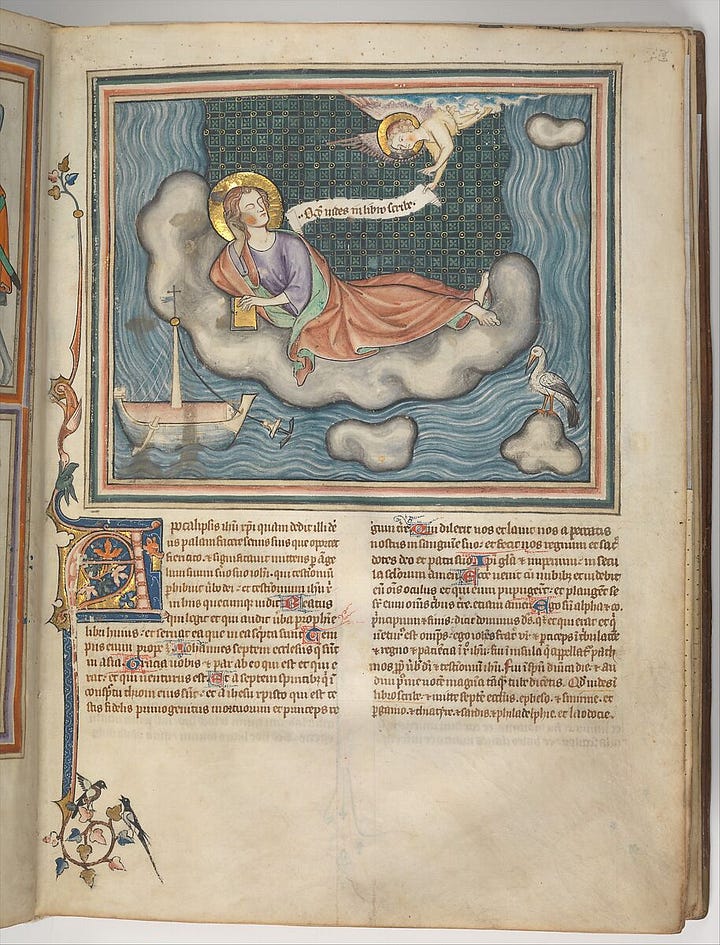 Qđ vides in libro scribe.
Apocalipsis ihū xp̄i quam dedit illi de
us palam facere seruis suis que oportet
fieri cito. ⁊ significauit mittens p ange
lum suum seruo suo iohī. qui testimoniū
phibuit ūbo dei. ⁊ testimonium ihū x̄
in hiis quecumq; uidit. Beatus
qui legit et qui audit ūba prophetie
libri huius. et seruat ea que in ea scripta sunt Tem
pus enim prope. Iohannes septem ecclesiis q̄ sunt
in asia. Gracia uobis ⁊ pax ab eo qui est et qui e
rat. et qui uenturus est ⁊ a septem spiritibȝ q̄ ī
conspectu throni eius sūt. et a ihesu xpisto qui est te
stis fidelis primogenitus mortuorum et princeps re
gum tre. Qui dilexit nos et lauit nos a peccatis
nostris in sanguine suo. et fecit nos regnum et sac̄
dotes deo et patri suo. Ipi gl̄a et imperium in secu
la seculorum amen. Ecce uenit cū nubibȝ et uidebit
eū oīs oculus et qui eum pupugerūt. et planget se
sr̄ eum om̄s tribus tre. etiam amen. Ego sū alpha et ω.
principium et finis. dicit dominus ds̄. q̄ est qui erat et q̄
uentur̄ est omīps. ego ioh̄es frater vr̄ ⁊ particeps ī tribulacōe
⁊ regno ⁊ paciencia ī ihū. fui ī insula q̄ appellatʳ path
mos pp̄ ūbū dī ⁊ testimoniū ihū. Fui ī spū dnīca die. ⁊ au
diui post me uocē magnā tāq̄ tube dicētis. Qđ uides ī
libro scribe. ⁊ mitte septē eccl̄iis. epheso. ⁊ smirne. et
pergamo. ⁊ thiatire. ⁊ sardis. ⁊ philadelphie. et laodocie.